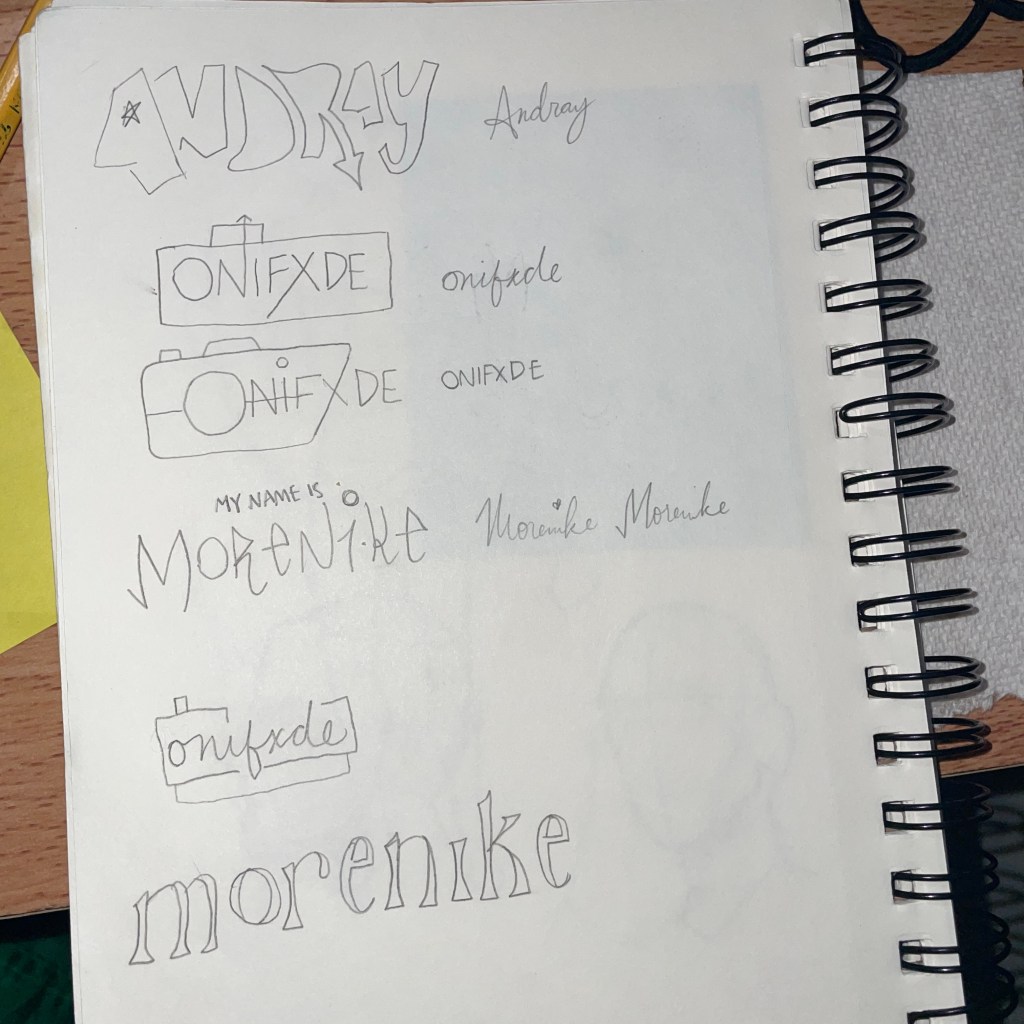 ANDRAY Andray
ONIFXDE onifxde
ONIFXDE ONIFXDE
MY NAME IS
MORENIKE Morenike Morenike
onifxde
morenike